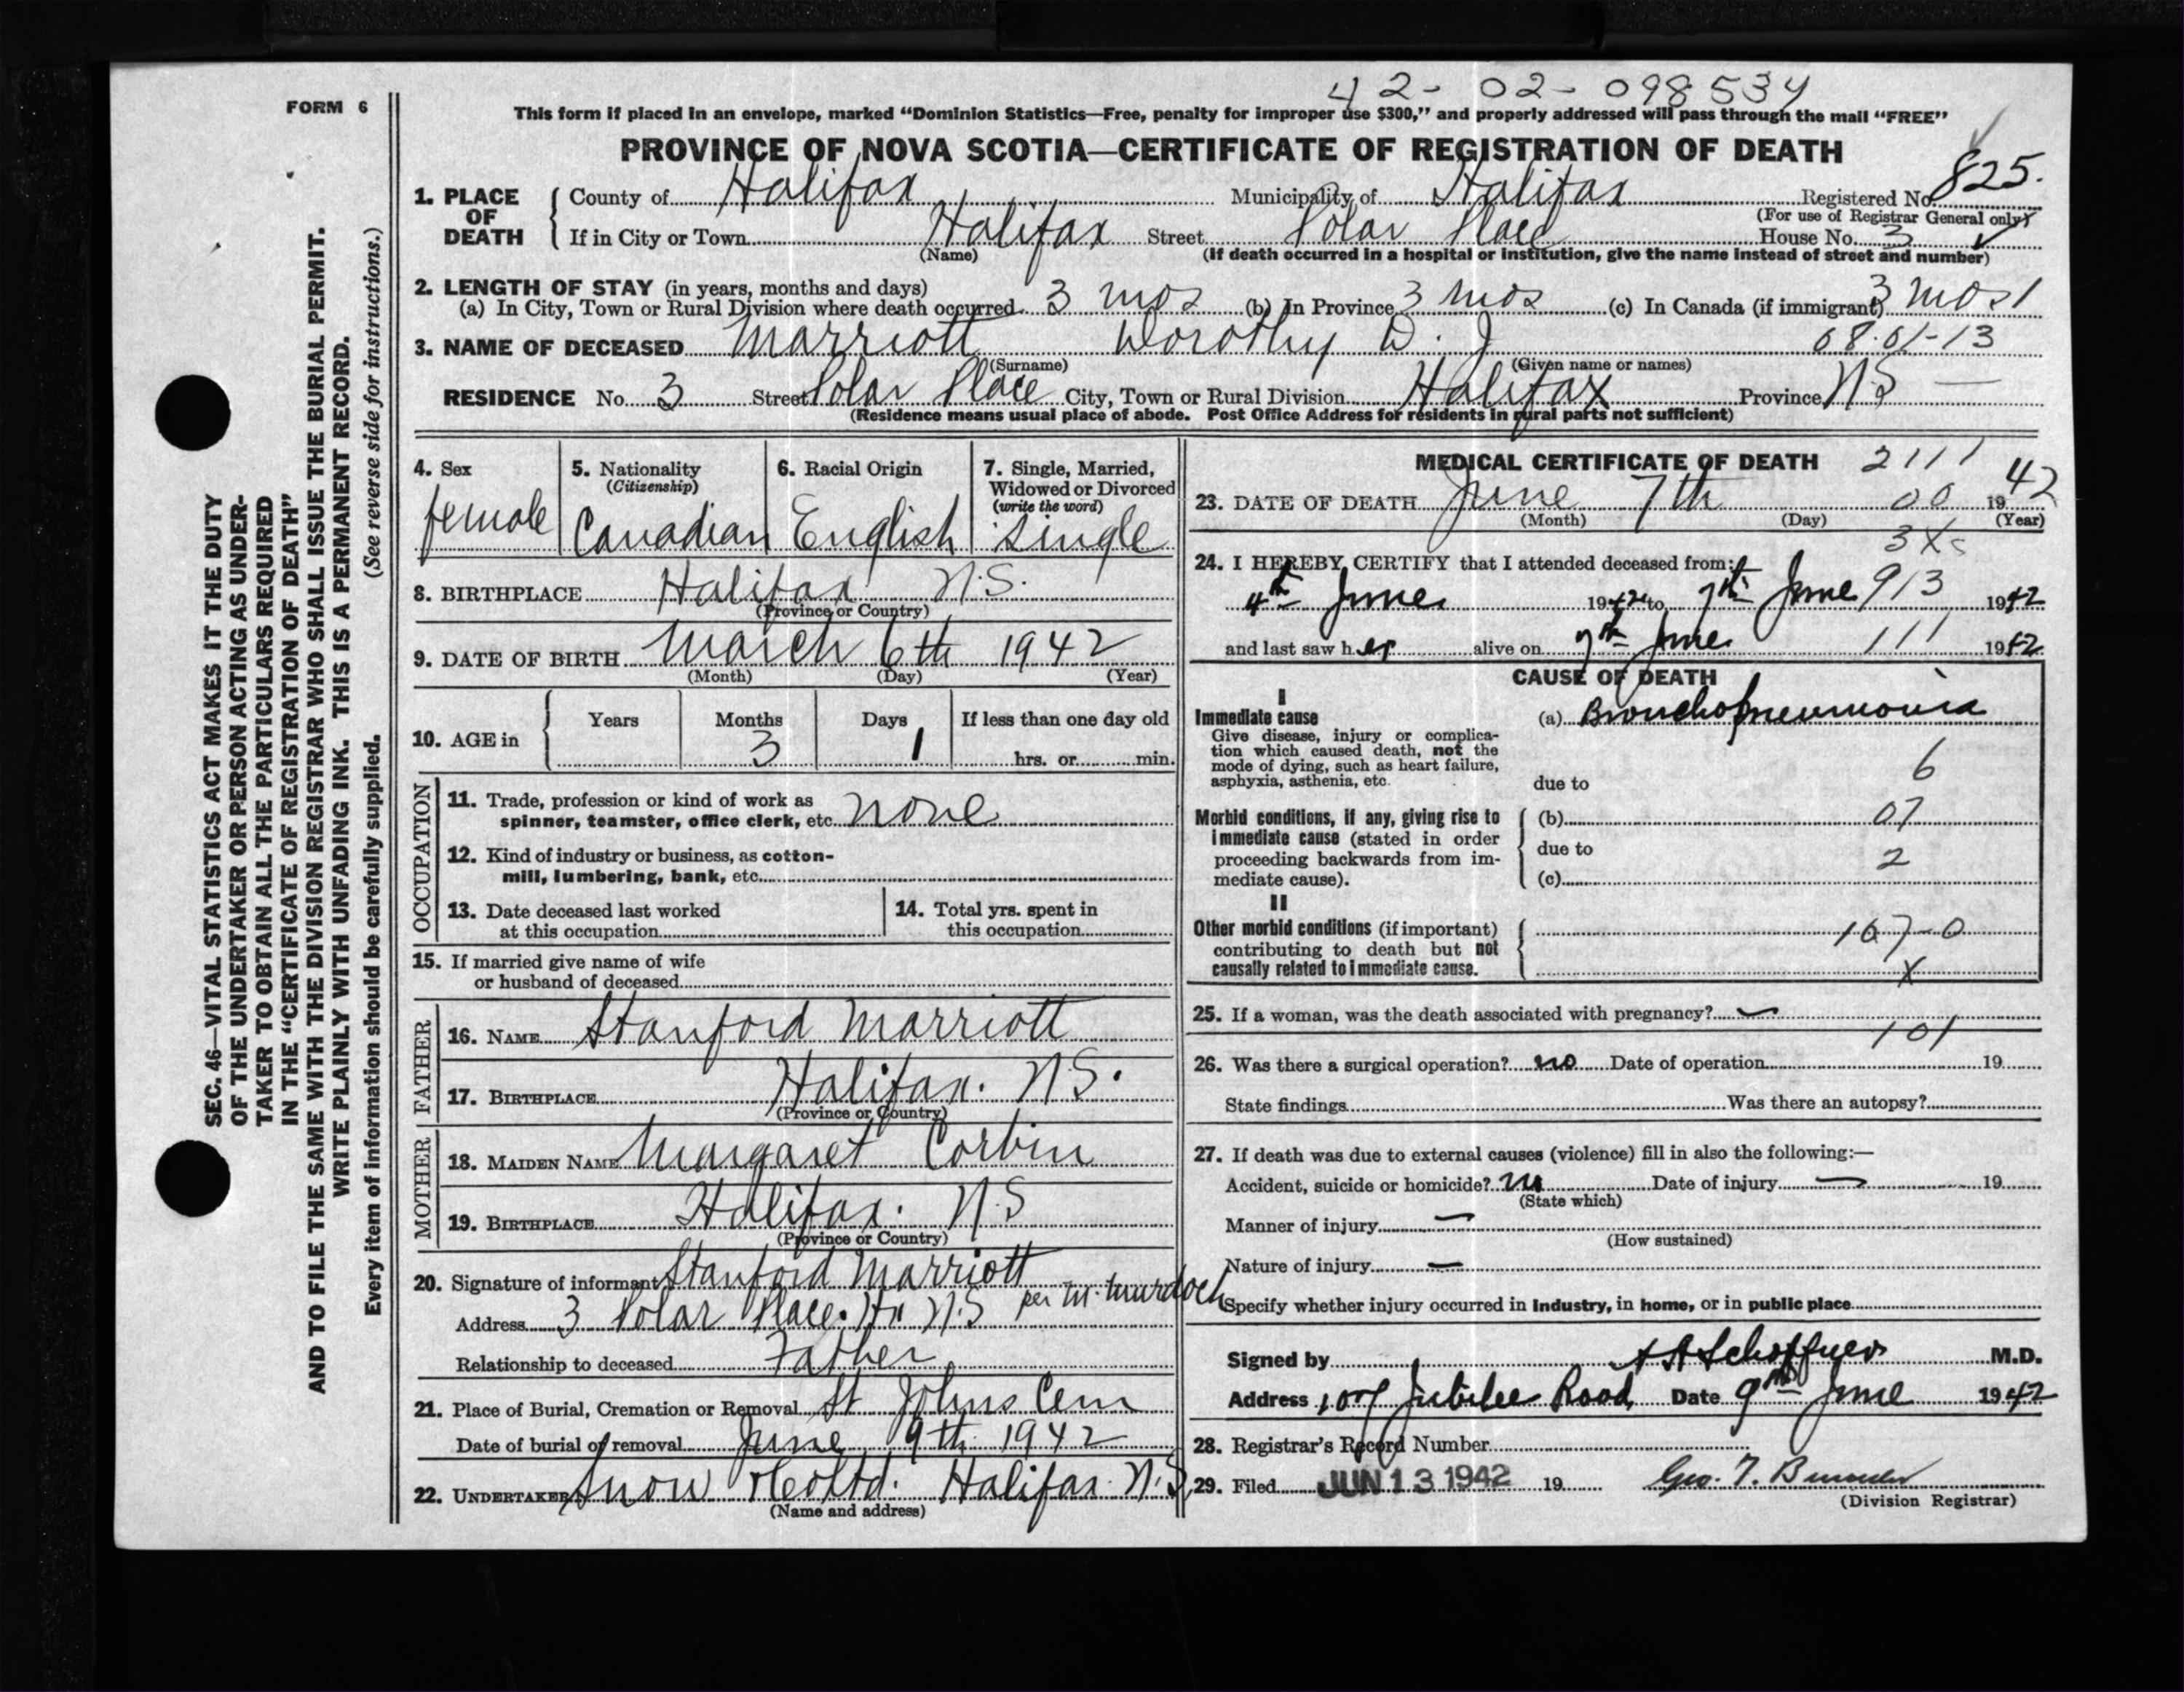 42-02-098534
FORM 6
This form if placed in an envelope, marked "Dominion Statistics—Free, penalty for improper use $300," and properly addressed will pass through the mail "FREE"
PROVINCE OF NOVA SCOTIA—CERTIFICATE OF REGISTRATION OF DEATH
825.
1. PLACE OF DEATH County of Halifax Municipality of Halifax Registered No.
(For use of Registrar General only)
If in City or Town Halifax Street Polar Place House No. 3
(Name) (If death occurred in a hospital or institution, give the name instead of street and number)
2. LENGTH OF STAY (in years, months and days)
(a) In City, Town or Rural Division where death occurred 3 mos (b) In Province 3 mos (c) In Canada (if immigrant) 3 mos 1
3. NAME OF DECEASED Marriott Dorothy D. J 68.01-13
(Surname) (Given name or names)
RESIDENCE No. 3 Street Polar Place City, Town or Rural Division Halifax Province NS —
(Residence means usual place of abode. Post Office Address for residents in rural parts not sufficient)
4. Sex female
5. Nationality (Citizenship) Canadian
6. Racial Origin English
7. Single, Married, Widowed or Divorced (write the word) Single
8. BIRTHPLACE Halifax N.S.
(Province or Country)
9. DATE OF BIRTH March 6th 1942
(Month) (Day) (Year)
10. AGE in Years Months Days If less than one day old
3 1 hrs. or min.
OCCUPATION
11. Trade, profession or kind of work as
spinner, teamster, office clerk, etc. none
12. Kind of industry or business, as cotton-
mill, lumbering, bank, etc.
13. Date deceased last worked
at this occupation
14. Total yrs. spent in
this occupation
15. If married give name of wife
or husband of deceased
FATHER
16. NAME Stanford Marriott
17. BIRTHPLACE Halifax. N.S.
(Province or Country)
MOTHER
18. MAIDEN NAME Margaret Corbin
19. BIRTHPLACE Halifax. N.S
(Province or Country)
20. Signature of informant Stanford Marriott
per M. Murdoch
Address 3 Polar Place. Hx N.S
Relationship to deceased Father
21. Place of Burial, Cremation or Removal St Johns Cem
Date of burial or removal June 9th 1942
22. UNDERTAKER Snow & Co Ltd. Halifax N.S.
(Name and address)
MEDICAL CERTIFICATE OF DEATH 2111
23. DATE OF DEATH June 7th 00 1942
(Month) (Day) (Year)
24. I HEREBY CERTIFY that I attended deceased from:
4th June 1942 to 7th June 913 1942
and last saw her alive on 7th June 111 1942
CAUSE OF DEATH
I
Immediate cause (a) Bronchopneumonia
Give disease, injury or complica-
tion which caused death, not the
mode of dying, such as heart failure,
asphyxia, asthenia, etc.
6
due to
Morbid conditions, if any, giving rise to
immediate cause (stated in order
proceeding backwards from im-
mediate cause).
(b) 07
due to 2
(c)
II
Other morbid conditions (if important)
contributing to death but not
causally related to immediate cause.
107-0
X
25. If a woman, was the death associated with pregnancy?
101
26. Was there a surgical operation? no Date of operation 19
State findings Was there an autopsy?
27. If death was due to external causes (violence) fill in also the following:—
Accident, suicide or homicide? Date of injury — 19
(State which)
Manner of injury —
(How sustained)
Nature of injury —
Specify whether injury occurred in industry, in home, or in public place
Signed by M.D.
Address Jubilee Road Date 9th June 1942
28. Registrar's Record Number
29. Filed JUN 13 1942 19 Geo. T.
(Division Registrar)
SEC. 46—VITAL STATISTICS ACT MAKES IT THE DUTY
OF THE UNDERTAKER OR PERSON ACTING AS UNDER-
TAKER TO OBTAIN ALL THE PARTICULARS REQUIRED
IN THE "CERTIFICATE OF REGISTRATION OF DEATH"
AND TO FILE THE SAME WITH THE DIVISION REGISTRAR WHO SHALL ISSUE THE BURIAL PERMIT.
WRITE PLAINLY WITH UNFADING INK. THIS IS A PERMANENT RECORD.
Every item of information should be carefully supplied. (See reverse side for instructions.)